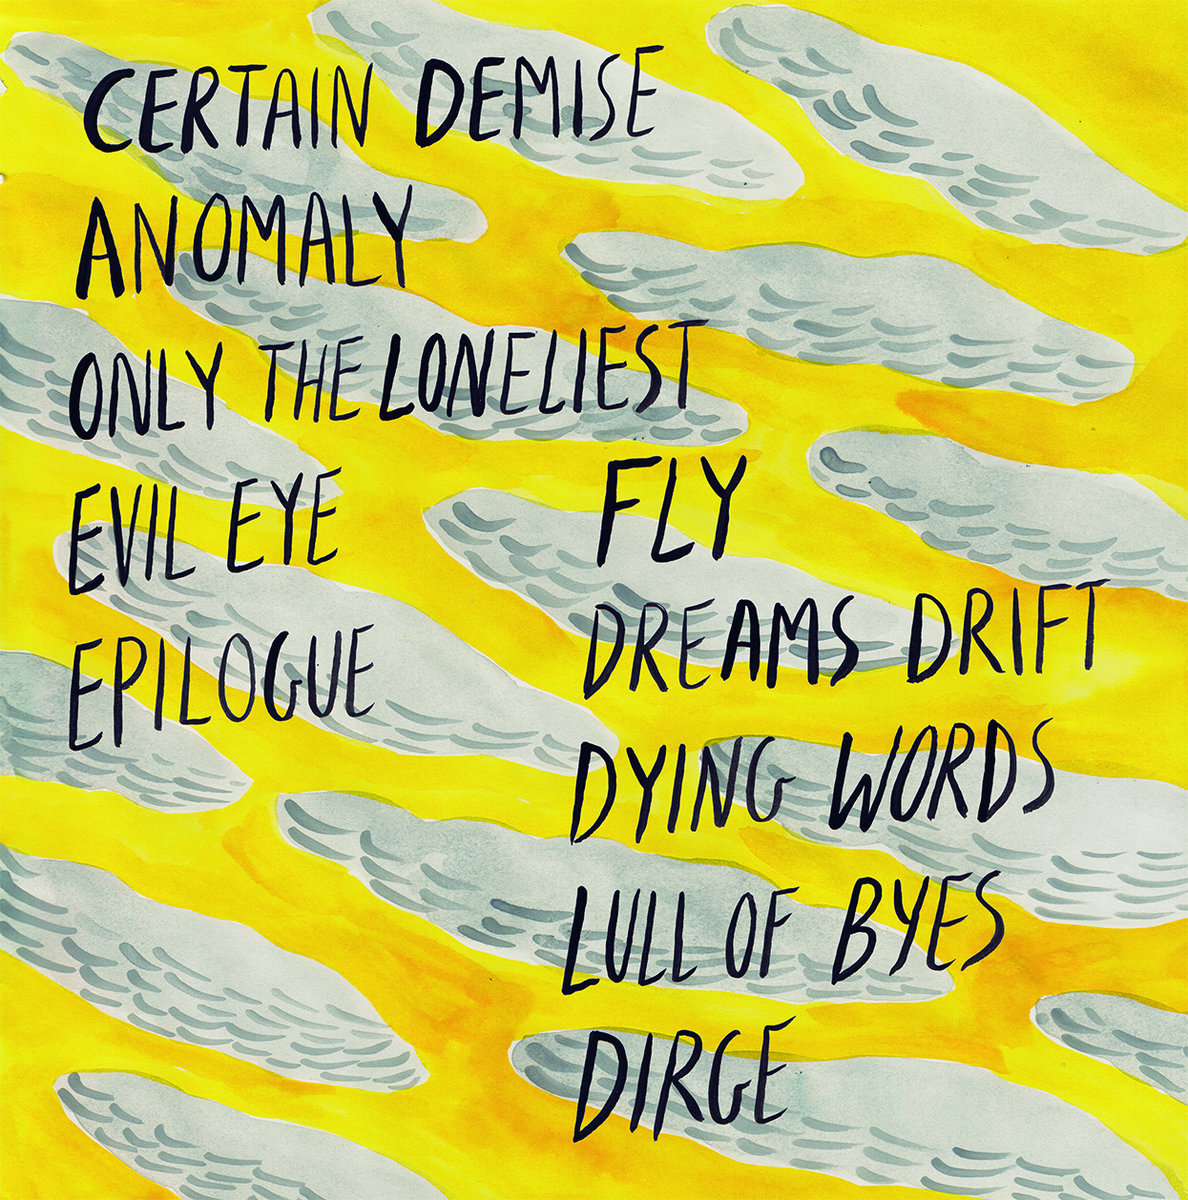 CERTAIN DEMISE
ANOMALY
ONLY THE LONELIEST
EVIL EYE
EPILOGUE
FLY
DREAMS DRIFT
DYING WORDS
LULL OF BYES
DIRGE